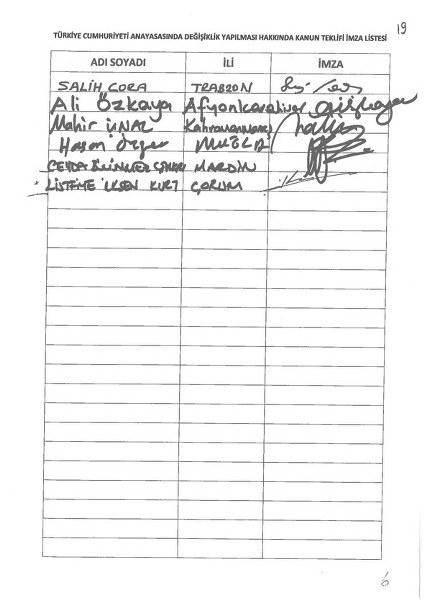 19
TÜRKİYE CUMHURİYETİ ANAYASASINDA DEĞİŞİKLİK YAPILMASI HAKKINDA KANUN TEKLİFİ İMZA LİSTESİ
ADI SOYADI İLİ İMZA
SALİH CORA TRABZON
Ali Özkaya Afyonkarahisar
Mahir ÜNAL Kahramanmaraş
Hasan Özyer MUĞLA
CEYDA MARDİN
KURT ÇORUM
6